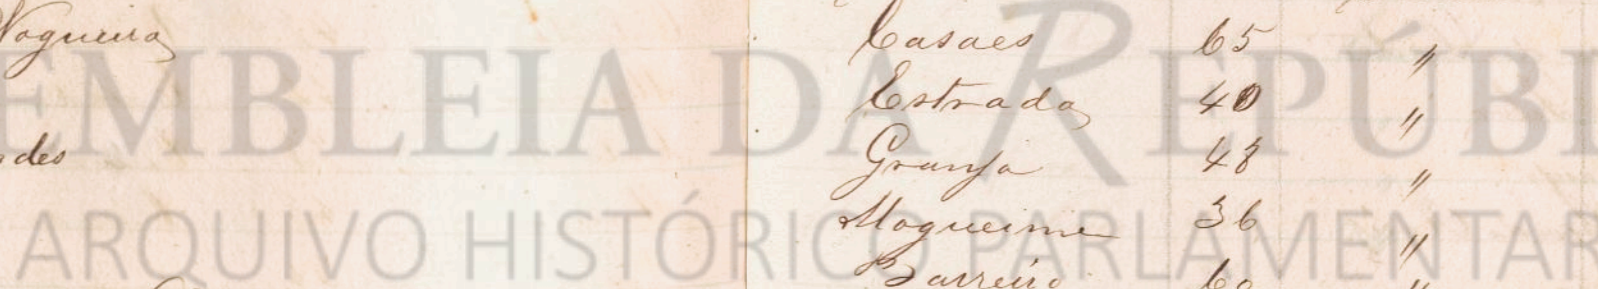 Nogueira
Casaes 65 "
Estrada 40 "
des
Granja 48 "
Moqueime 36 "
Barreiro 60 "
EMBLEIA DA REPÚBL
ARQUIVO HISTÓRICO PARLAMENTAR